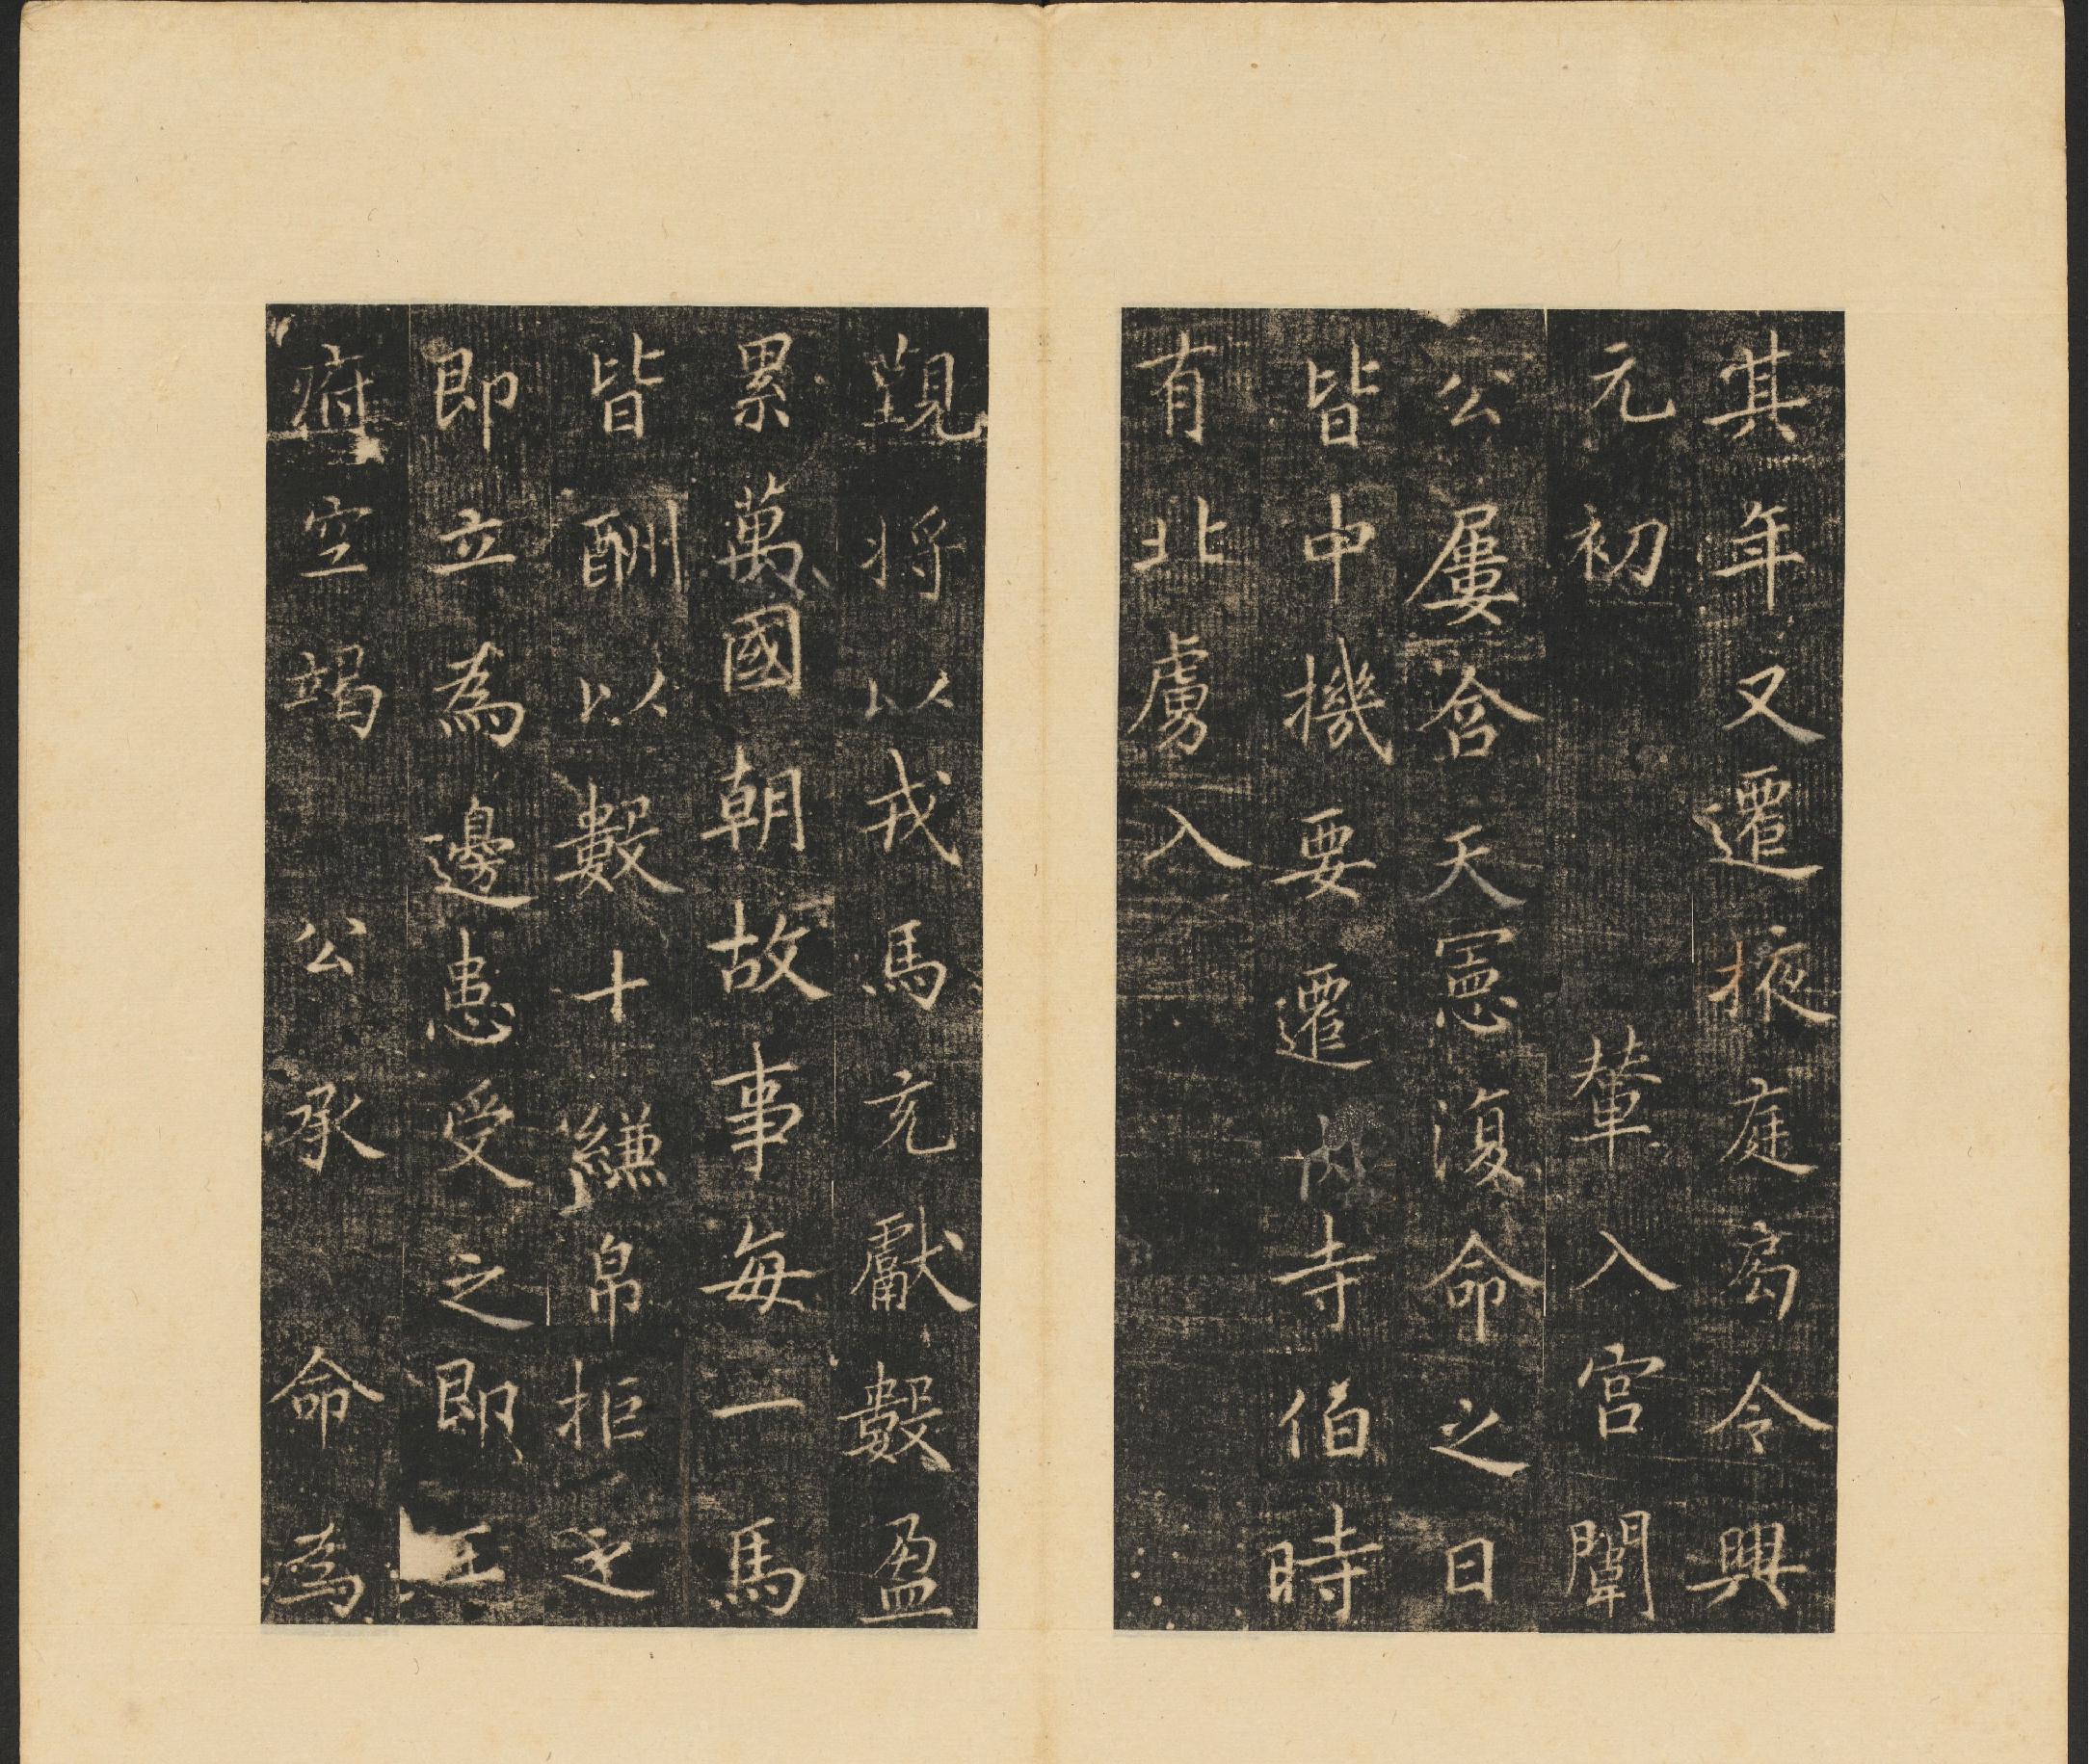 其年又遷掖庭局令興
元初輦入宮闈
公屢含天憲復命之日
皆中機要遷内寺伯時
有北虜入
覲將以戎馬充獻數盈
累萬國朝故事每一馬
皆酬以數十縑帛拒之
即立為邊患受之即王
府空竭公承命為